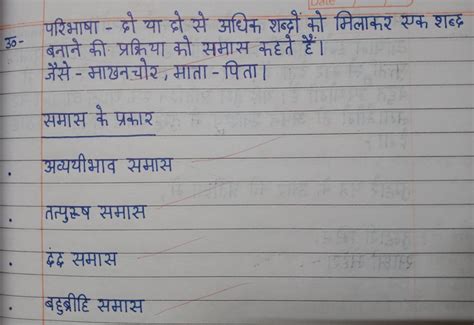 उ०- परिभाषा - दो या दो से अधिक शब्दों को मिलाकर एक शब्द
बनाने की प्रक्रिया को समास कहते हैं।
जैसे - माखनचोर, माता - पिता।
समास के प्रकार
. अव्ययीभाव समास
. तत्पुरूष समास
. द्वंद्व समास
. बहुब्रीहि समास